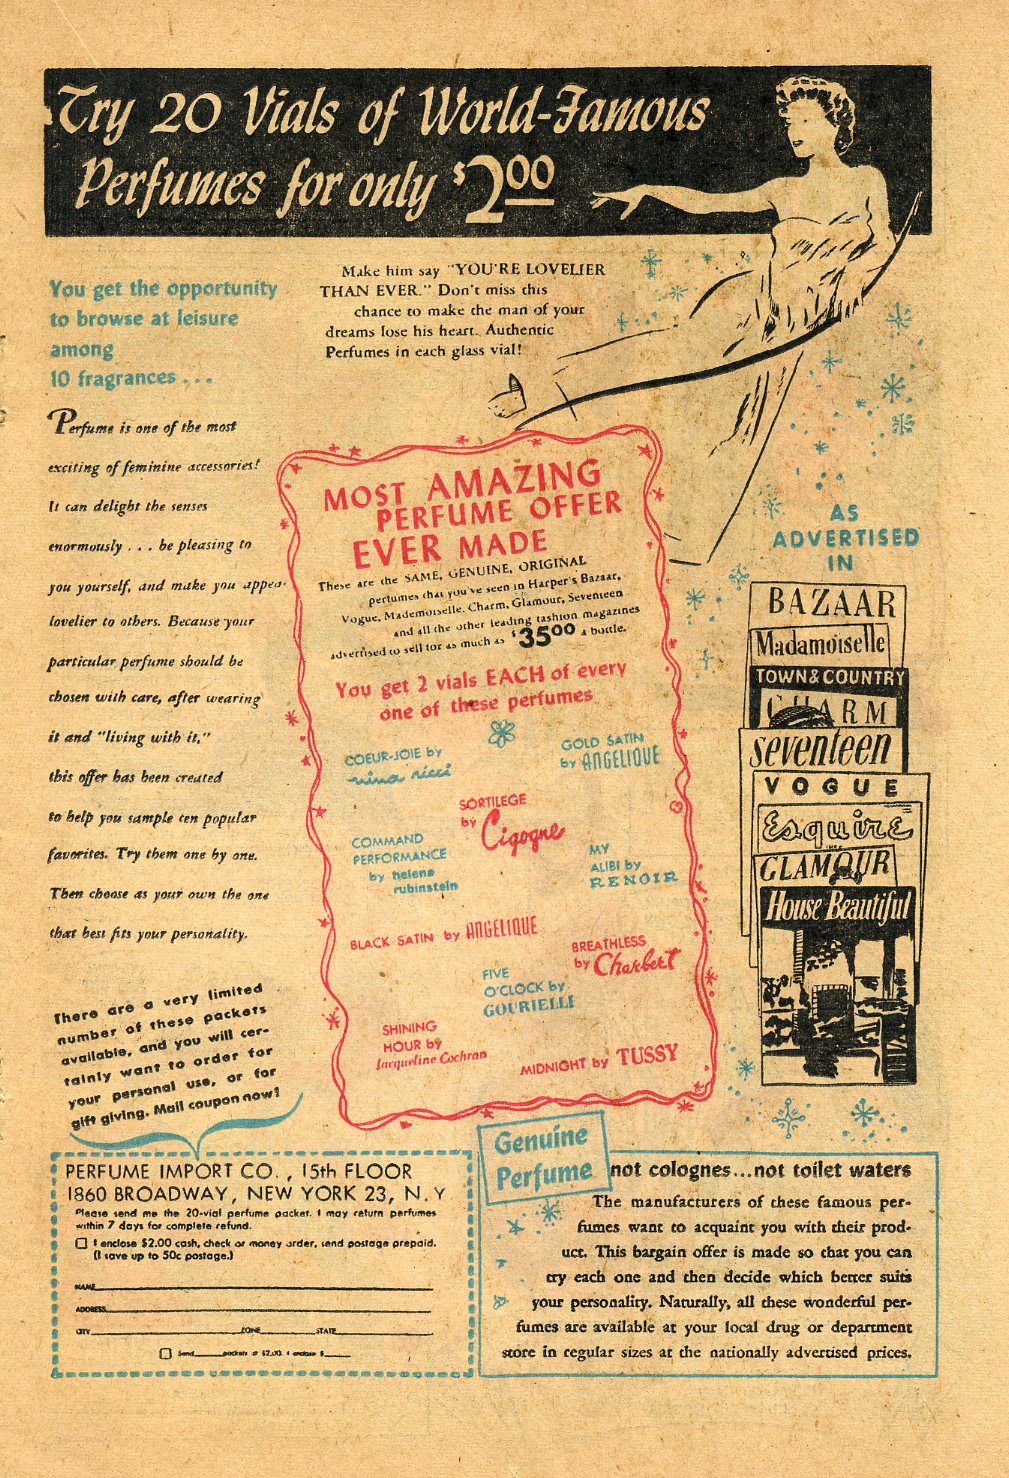 Try 20 Vials of World-Famous
Perfumes for only $2.00
You get the opportunity
to browse at leisure
among
10 fragrances . . .
Make him say "YOU'RE LOVELIER
THAN EVER." Don't miss this
chance to make the man of your
dreams lose his heart. Authentic
Perfumes in each glass vial!
Perfume is one of the most
exciting of feminine accessories!
It can delight the senses
enormously . . . be pleasing to
you yourself, and make you appear
lovelier to others. Because your
particular perfume should be
chosen with care, after wearing
it and "living with it,"
this offer has been created
to help you sample ten popular
favorites. Try them one by one.
Then choose as your own the one
that best fits your personality.
There are a very limited
number of these packets
available, and you will cer-
tainly want to order for
your personal use, or for
gift giving. Mail coupon now!
MOST AMAZING
PERFUME OFFER
EVER MADE
These are the SAME, GENUINE, ORIGINAL
perfumes that you've seen in Harper's Bazaar,
Vogue, Mademoiselle, Charm, Glamour, Seventeen
and all the other leading fashion magazines
advertised to sell for as much as $35.00 a bottle.
You get 2 vials EACH of every
one of these perfumes
COEUR-JOIE by
nina ricci
GOLD SATIN
by ANGELIQUE
SORTILEGE
by Cigogne
COMMAND
PERFORMANCE
by helena
rubinstein
MY
ALIBI by
RENOIR
BLACK SATIN by ANGELIQUE
BREATHLESS
by Charbert
FIVE
O'CLOCK by
GOURIELLI
SHINING
HOUR by
Jacqueline Cochran
MIDNIGHT by TUSSY
AS
ADVERTISED
IN
BAZAAR
Madamoiselle
TOWN & COUNTRY
CHARM
seventeen
VOGUE
Esquire
GLAMOUR
House Beautiful
PERFUME IMPORT CO., 15th FLOOR
1860 BROADWAY, NEW YORK 23, N. Y
Please send me the 20-vial perfume packet. I may return perfumes
within 7 days for complete refund.
I enclose $2.00 cash, check or money order, send postage prepaid.
(I save up to 50c postage.)
NAME
ADDRESS
CITY ZONE STATE
Send packets @ $2.00. I enclose $
Genuine
Perfume
not colognes...not toilet waters
The manufacturers of these famous per-
fumes want to acquaint you with their prod-
uct. This bargain offer is made so that you can
try each one and then decide which better suits
your personality. Naturally, all these wonderful per-
fumes are available at your local drug or department
store in regular sizes at the nationally advertised prices.